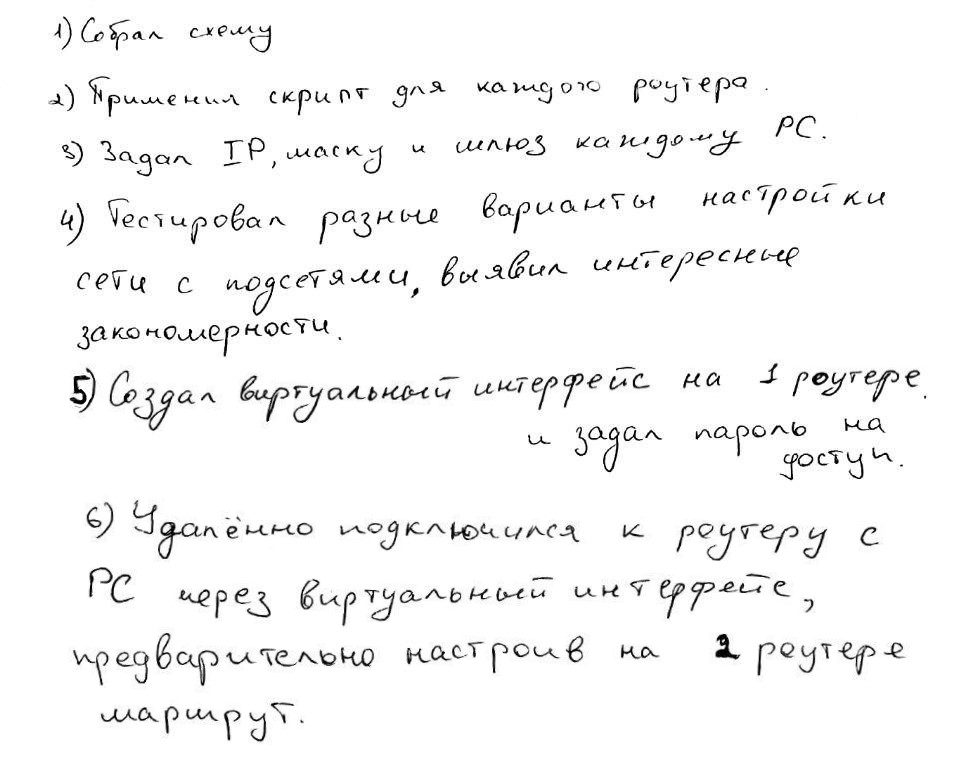 1) Собрал схему
2) Применил скрипт для каждого роутера.
3) Задал IP, маску и шлюз каждому PC.
4) Тестировал разные варианты настройки
сети с подсетями, выявил интересные
закономерности.
5) Создал виртуальный интерфейс на 1 роутере.
и задал пароль на
доступ.
6) Удалённо подключился к роутеру с
PC через виртуальный интерфейс,
предварительно настроив на 2 роутере
маршрут.